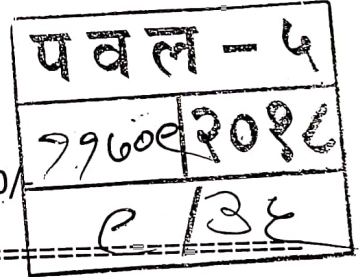 पवल - ५
११७०९ २०१८
0/
९/३६